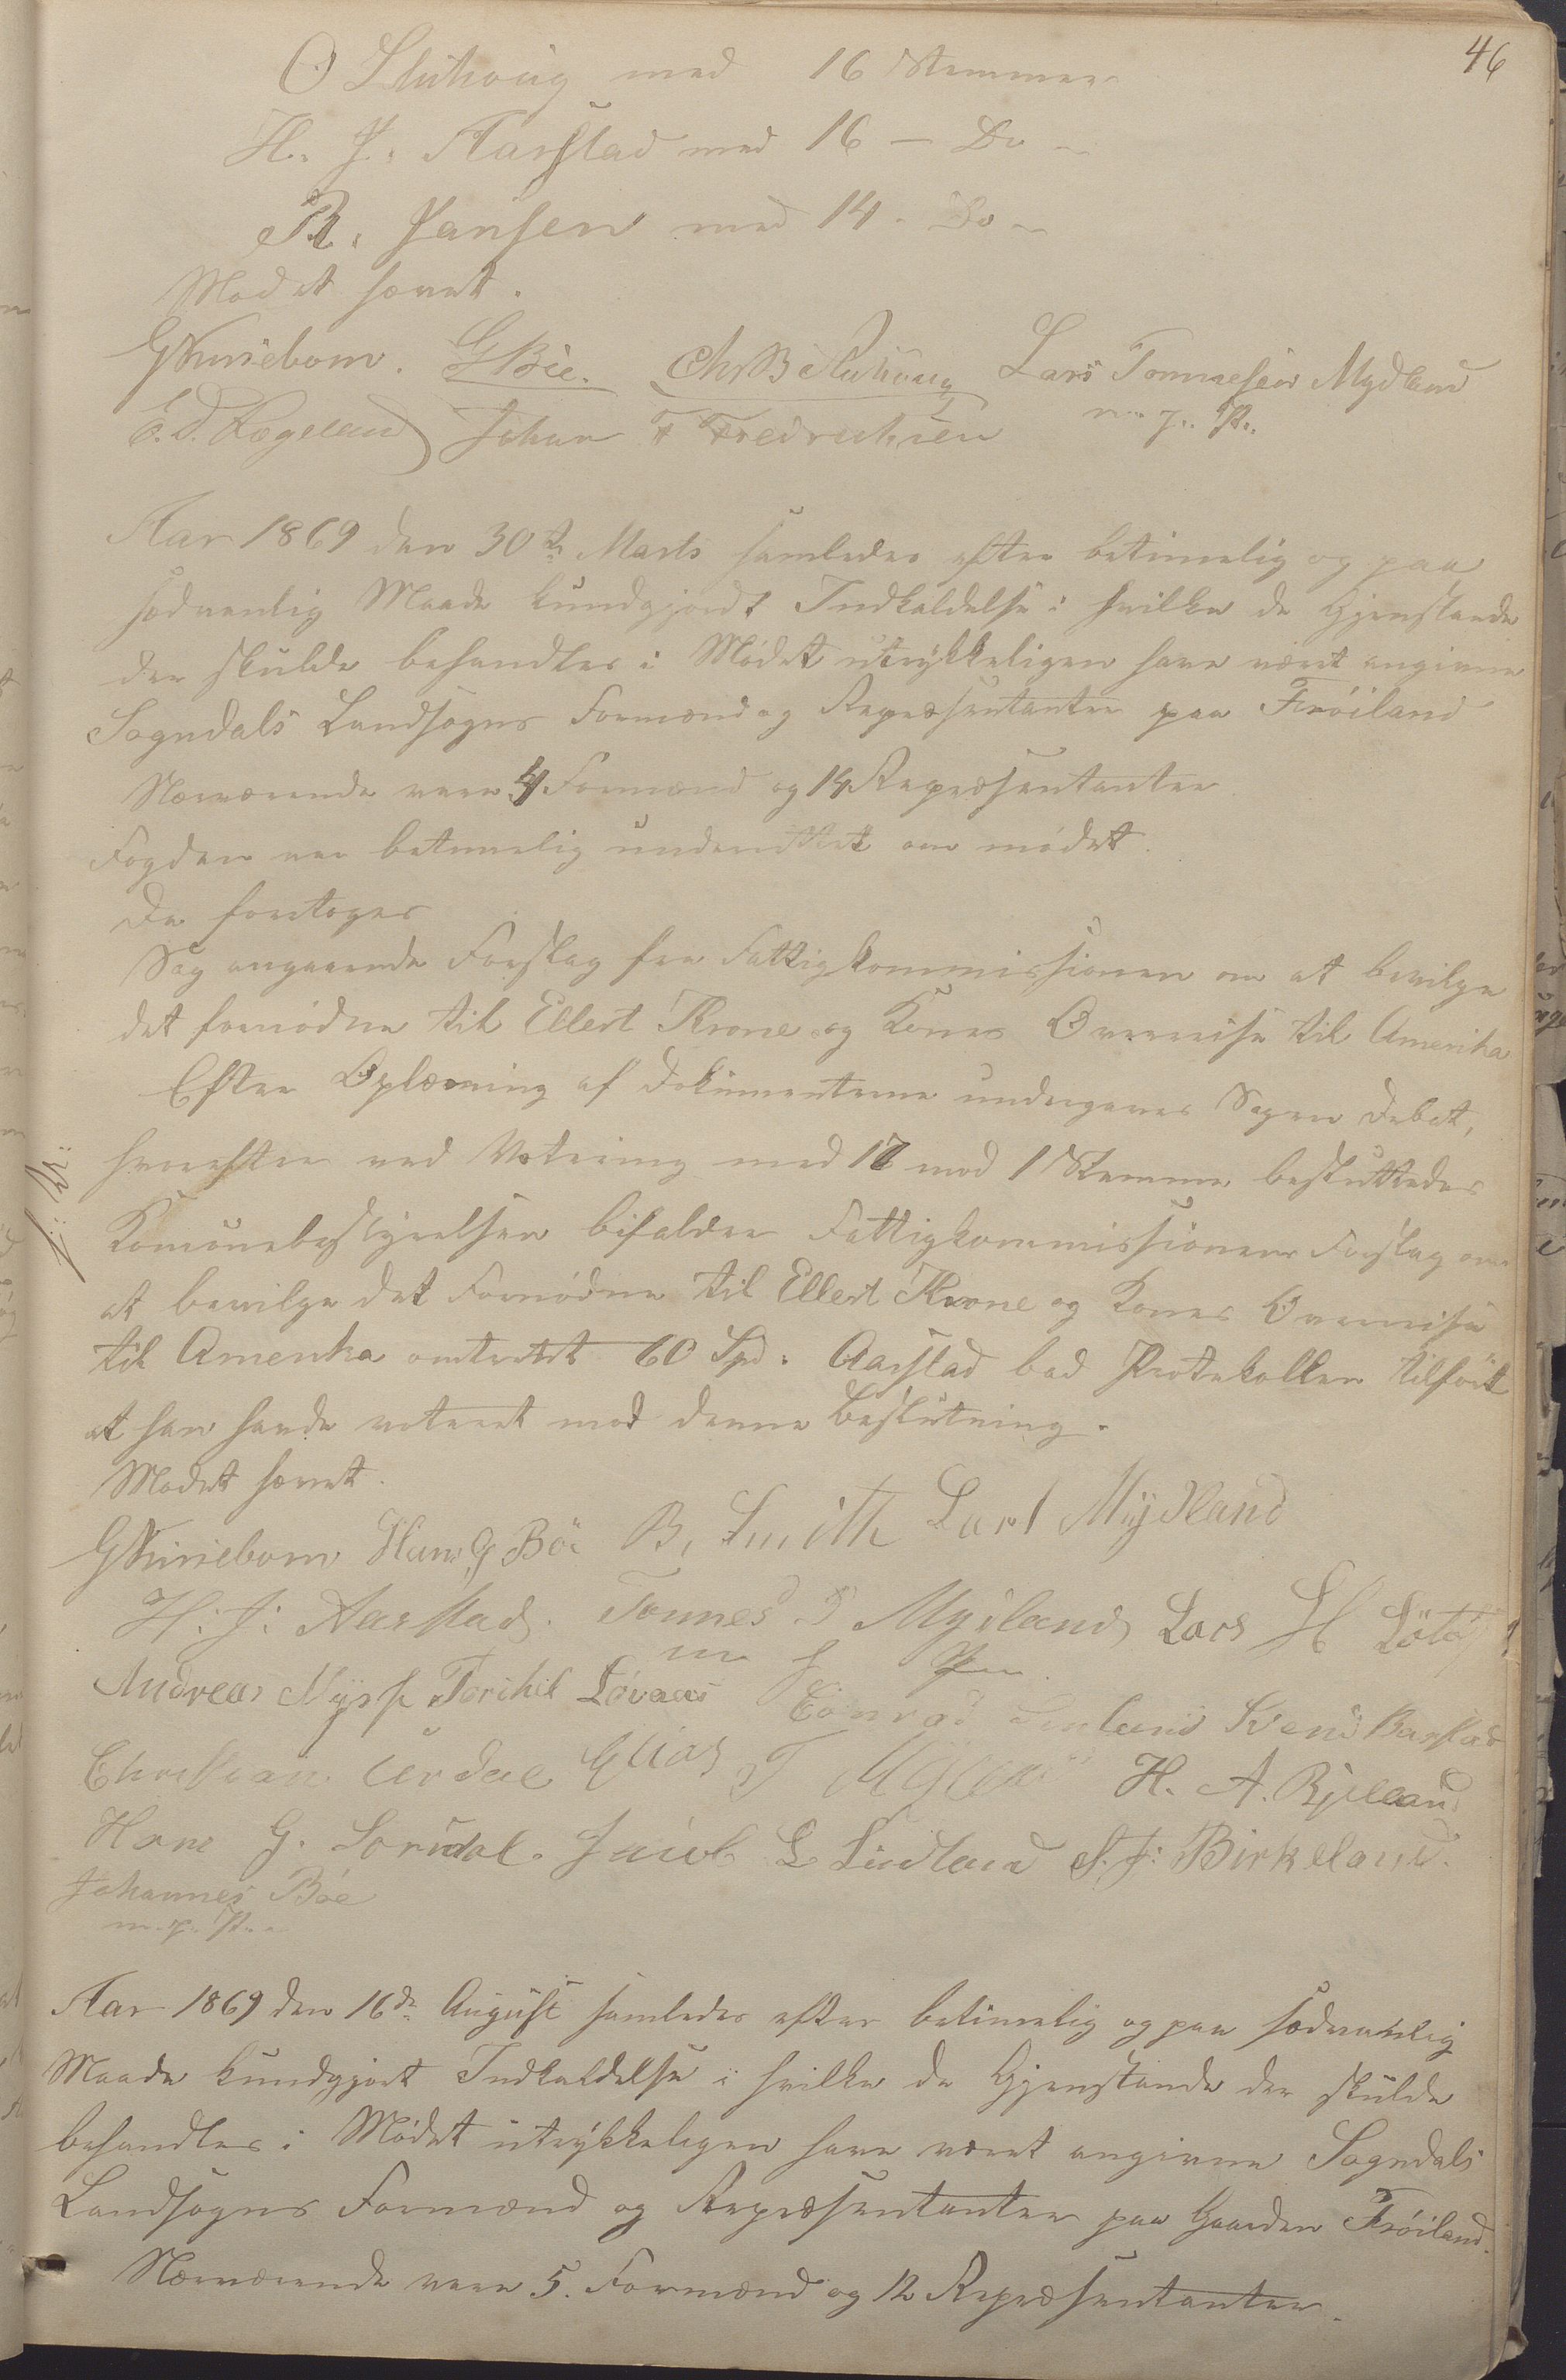 46
O Stuhoug med 16 Stemmer
H. J. Aarstad med 16 - Do -
R. Jansen med 14 - Do -
Mødet hævet.
GKuriebom. GBøe. Lars Tønnesen Mydland
m: f: P:
E. D. Rægeland Johan F Fredriksen
Aar 1869 den 30te Marts samledes efter betimelig og paa
sædvanlig Maade kundgjordt Indkaldelse i hvilke de Gjenstande
der skulde behandles i Mødet utrykkeligen have vært angivne
Sogndals Landsogns Formænd og Repræsentanter paa Frøiland
Nærværende vare 4 Formænd og 14 Repræsentanter
Fogden var betimelig underrettet om mødet.
Da foretoges
Sag angaaende Forslag fra Fattigkommissionen om at bevilge
det fornødne til Ellert Krone og Kones Overreise til Amerika
Efter Oplæsning af Dokumenterne undergaves Sagen Debat,
hvorefter ved Votering med 17 mod 1 Stemme besluttedes
Komunebestyrelsen bifalder Fattigkommissionens Forslag om
at bevilge det Fornødne til Ellert Krone og Kones Overreise
til Amerika omtrent 60 Spd. Aarstad bad Protokollen tilført
at han havde voteret mod denne Beslutning.
Mødet hævet.
GKuriebom Hans G Bøe B. Smith Carl Mydland
H. J. Aarstad. Tønnes T Mydland Lars H Løtoft
m f Pen
Andreas Myssa Torikel Løvaas Conrad Svend Barstad
Christian Urdal Elias T H. A. Rjeland
Hans G. Sordal. Jacob L Lindland S. J. Birkeland.
Johannes Bøe
m. p. P.
Aar 1869 den 16de August samledes efter betimelig og paa sædvanlig
Maade kundgjort Indkaldelse i hvilke de Gjenstande der skulde
behandles i Mødet utrykkeligen have været angivne Sogndals
Landsogns Formænd og Repræsentanter paa Gaarden Frøiland.
Nærværende vare 5. Formænd og 12 Repræsentanter.